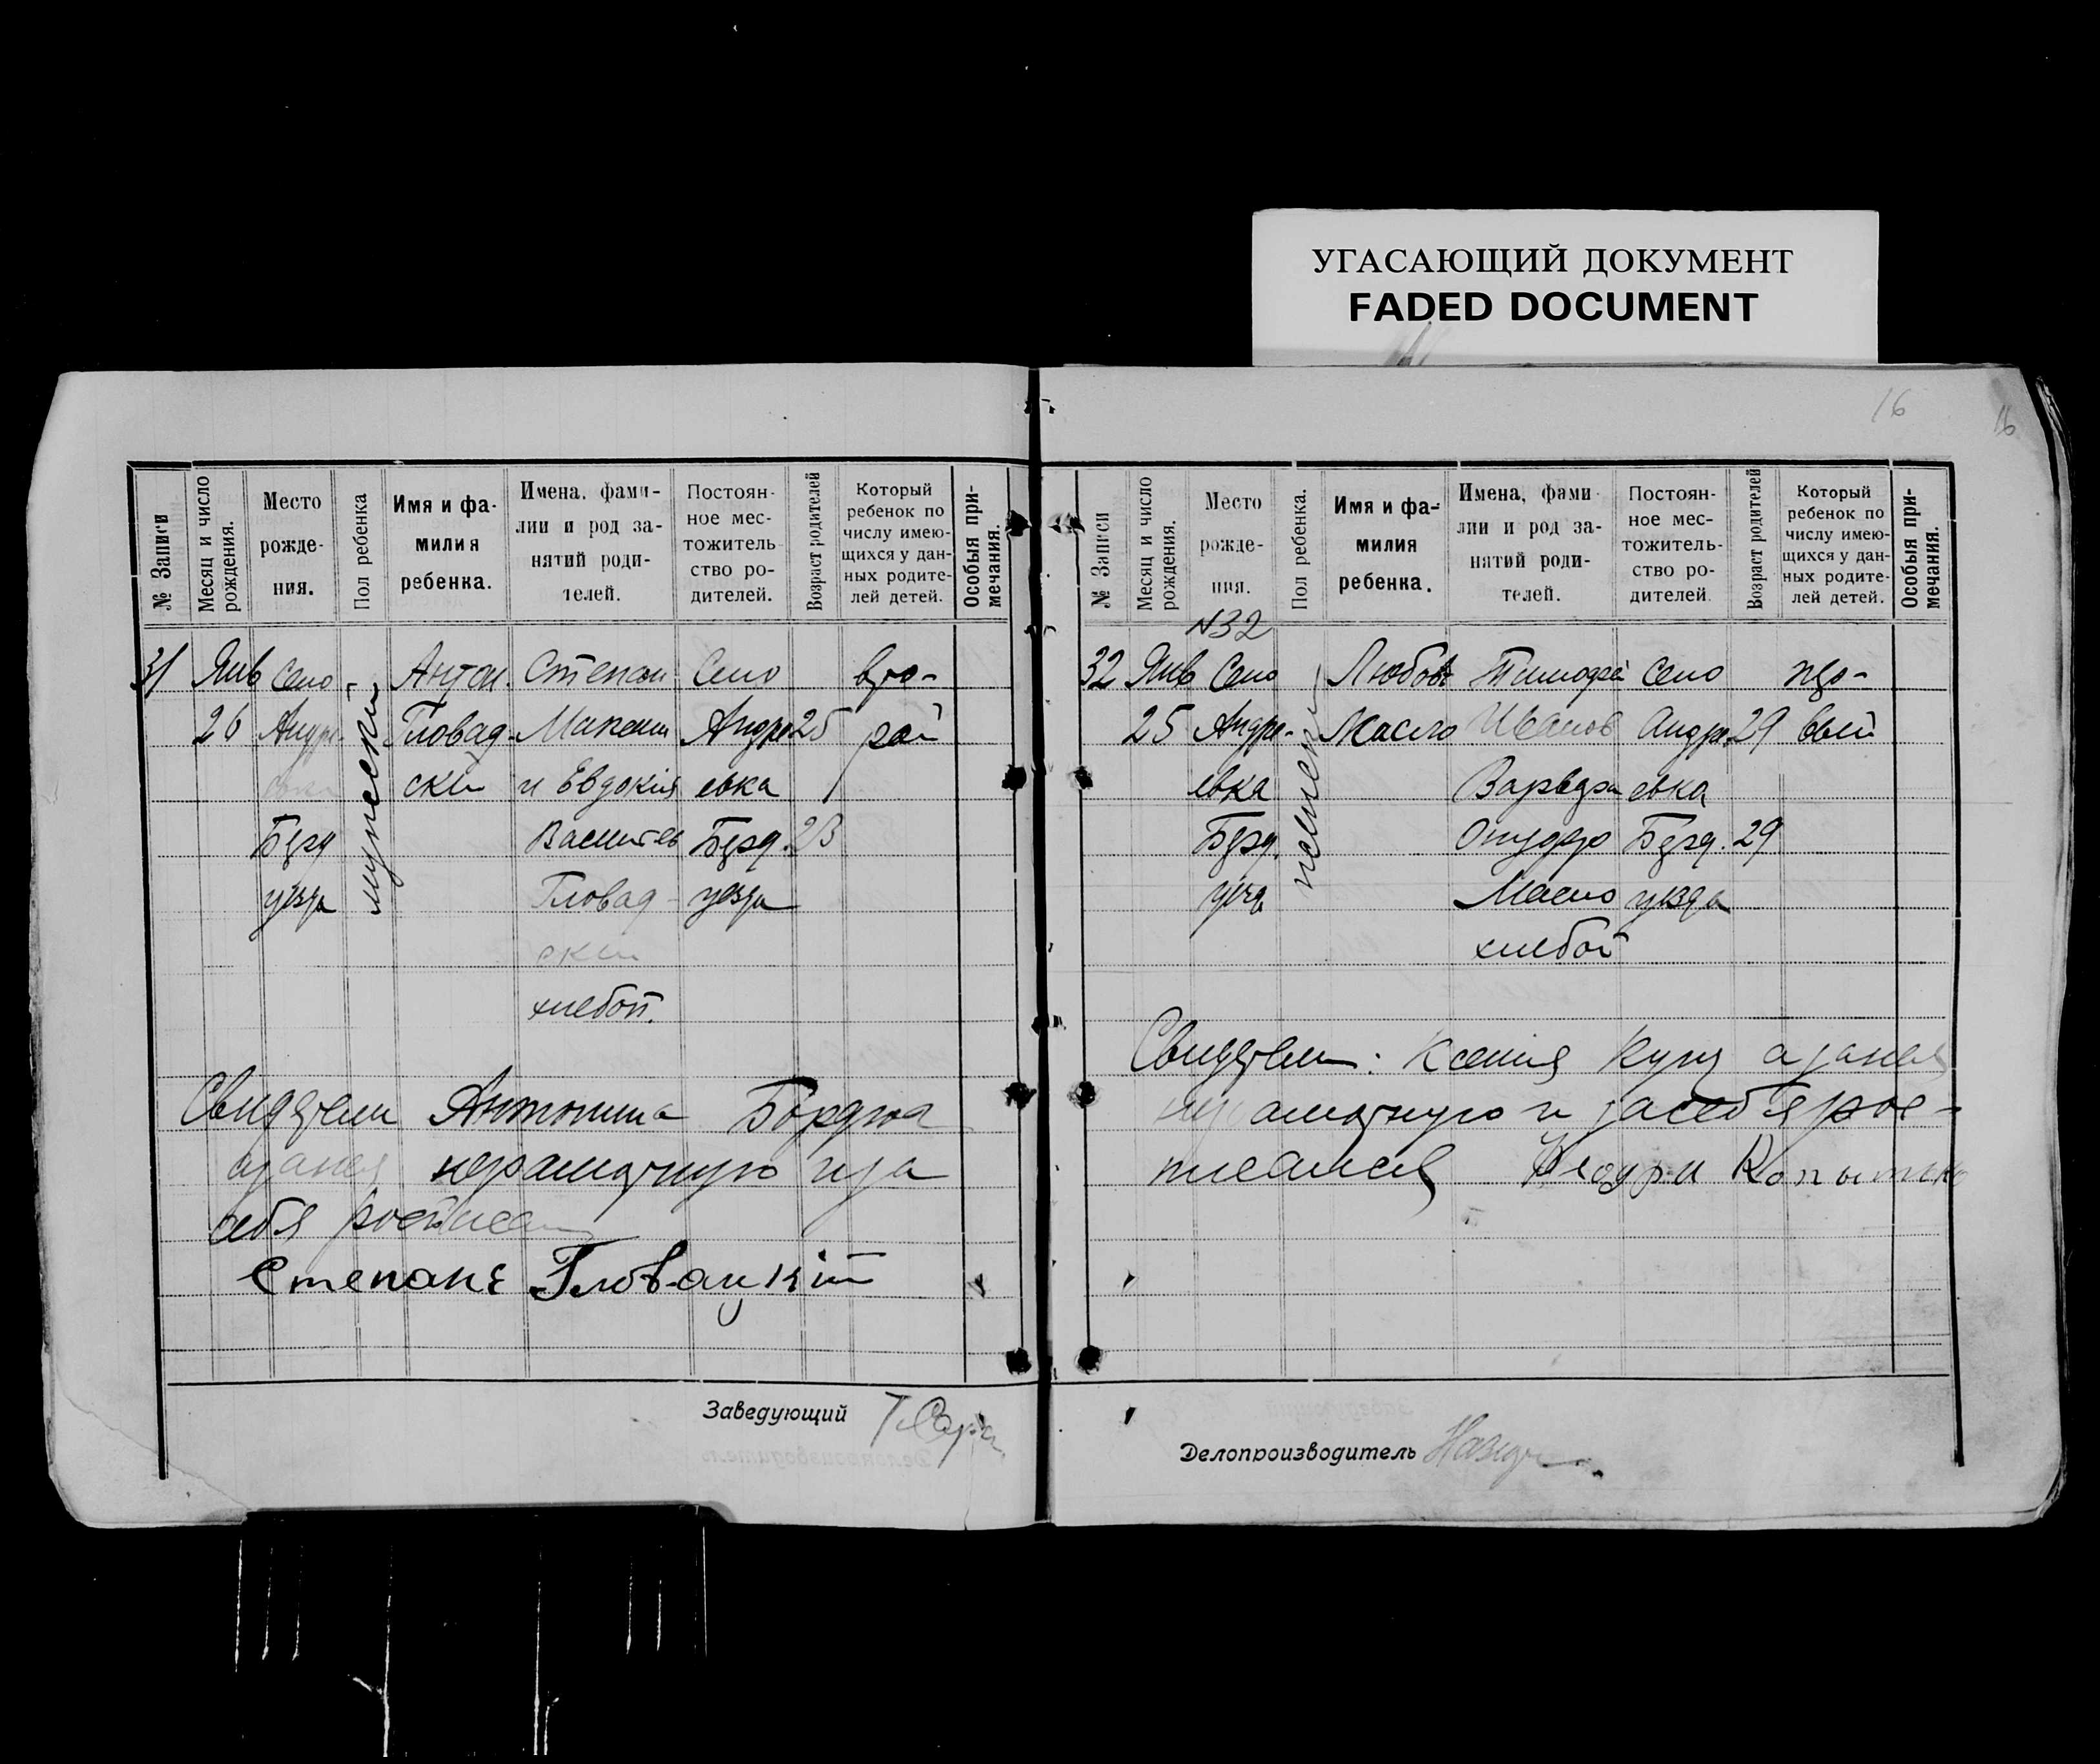 УГАСАЮЩИЙ ДОКУМЕНТ
FADED DOCUMENT
16
16
№ Записи
Месяц и число рождения.
Место рожде-ния.
Пол ребенка
Имя и фа-милия ребенка.
Имена, фами-лии и род за-нятий роди-телей.
Постоян-ное мес-тожитель-ство ро-дителей.
Возраст родителей
Который ребенок по числу имею-щихся у дан-ных родите-лей детей.
Особыя при-мечания.
31 Янв Село - Антон. Степан Село вто-
26 Андре- Гловад- Максим Андре 25 рой
евка ски и Евдокия евка
Бѣрд Васильев Бѣрд. 23
уезда Гловад- уезда
ски
хлебоп.
мужеский
Свидетели Антонина Бордюг
а за нея неграмотную и за
себя росписал
Степанъ Гловацкій
Заведующий
№ Записи
Месяц и число рождения.
Место рожде-ния.
Пол ребенка.
Имя и фа-милия ребенка.
Имена, фами-лии и род за-нятий роди-телей.
Постоян-ное мес-тожитель-ство ро-дителей.
Возраст родителей
Который ребенок по числу имею-щихся у дан-ных родите-лей детей.
Особыя при-мечания.
N32
32 Янв Село Любовь Тимофей село пер-
25 Андре- Масло Иванов Андре 29 вый
евка Варвара евка
Бѣрд. Бѣрд. 29
уезда Масло уезда
хлебоп
женский
Свидетели: Ксения а за нея
неграмотную и за себя рос-
писался Копытко
Делопроизводитель